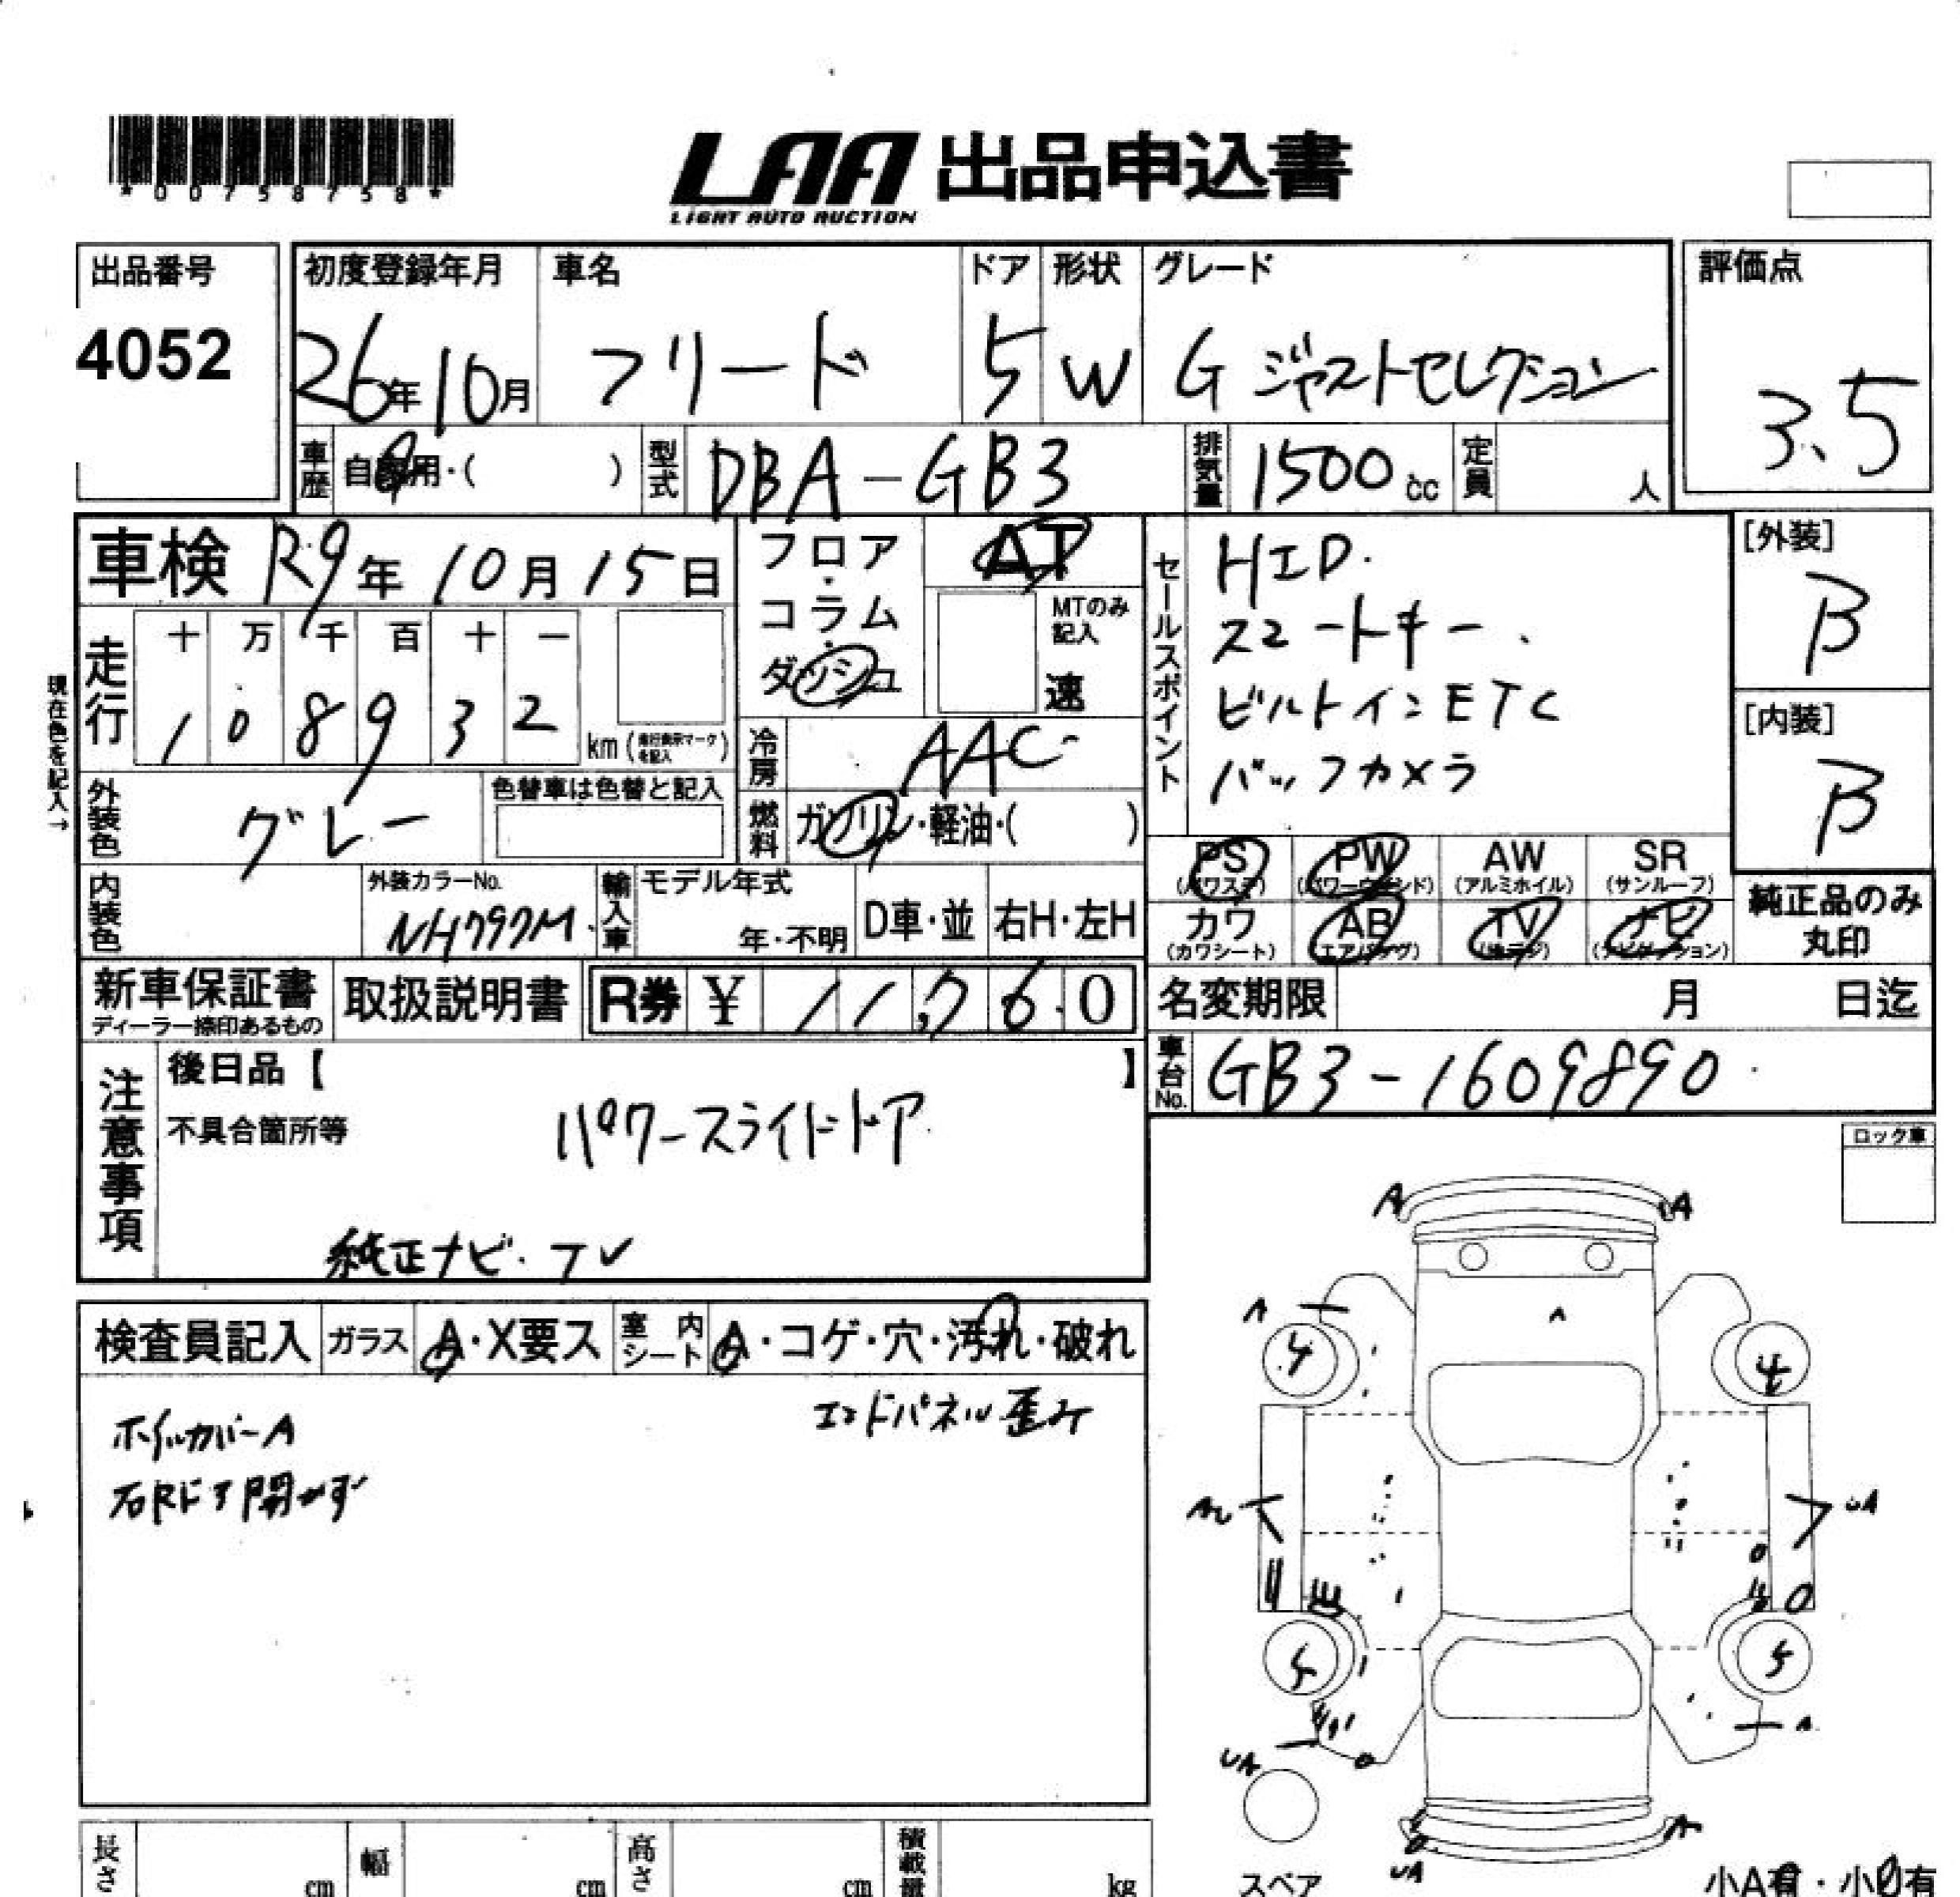 *00758758*
LAA 出品申込書
LIGHT AUTO AUCTION
出品番号 4052
初度登録年月 26年10月
車名 フリード
ドア 5
形状 W
グレード G ジャストセレクション
評価点 3.5
車歴 自家用・( )
型式 DBA-GB3
排気量 1500 cc
定員 人
車検 R9年10月15日
フロア・コラム・ダッシュ
AT
MTのみ記入
速
セールスポイント
HID.
スマートキー.
ビルトインETC
バックカメラ
[外装] B
[内装] B
現在色を記入→
走行 十万千百十一
108932 km (走行表示マークを記入)
冷房 AAC
燃料 ガソリン・軽油・( )
外装色 グレー
色替車は色替と記入
内装色
外装カラーNo. NH797M.
輸入車
モデル年式
年・不明
D車・並
右H・左H
PS (パワステ)
PW (パワーウィンド)
AW (アルミホイル)
SR (サンルーフ)
カワ (カワシート)
AB (エアバッグ)
TV (地デジ)
ナビ (ナビゲーション)
純正品のみ丸印
新車保証書
ディーラー捺印あるもの
取扱説明書
R券 ¥ 11,760
名変期限 月 日迄
車台No. GB3-1609890
注意事項
後日品【 】
不具合箇所等
パワースライドドア
純正ナビ・TV
ロック車
検査員記入
ガラス A・X要ス
室内シート A・コゲ・穴・汚れ・破れ
ホイルカバーA
エンドパネル歪み
右Rドア開かず
A A
A A
4 4
AU UA
5 5
UA A
UA A
スペア
小A有・小U有
長さ cm
幅 cm
高さ cm
積載量 kg